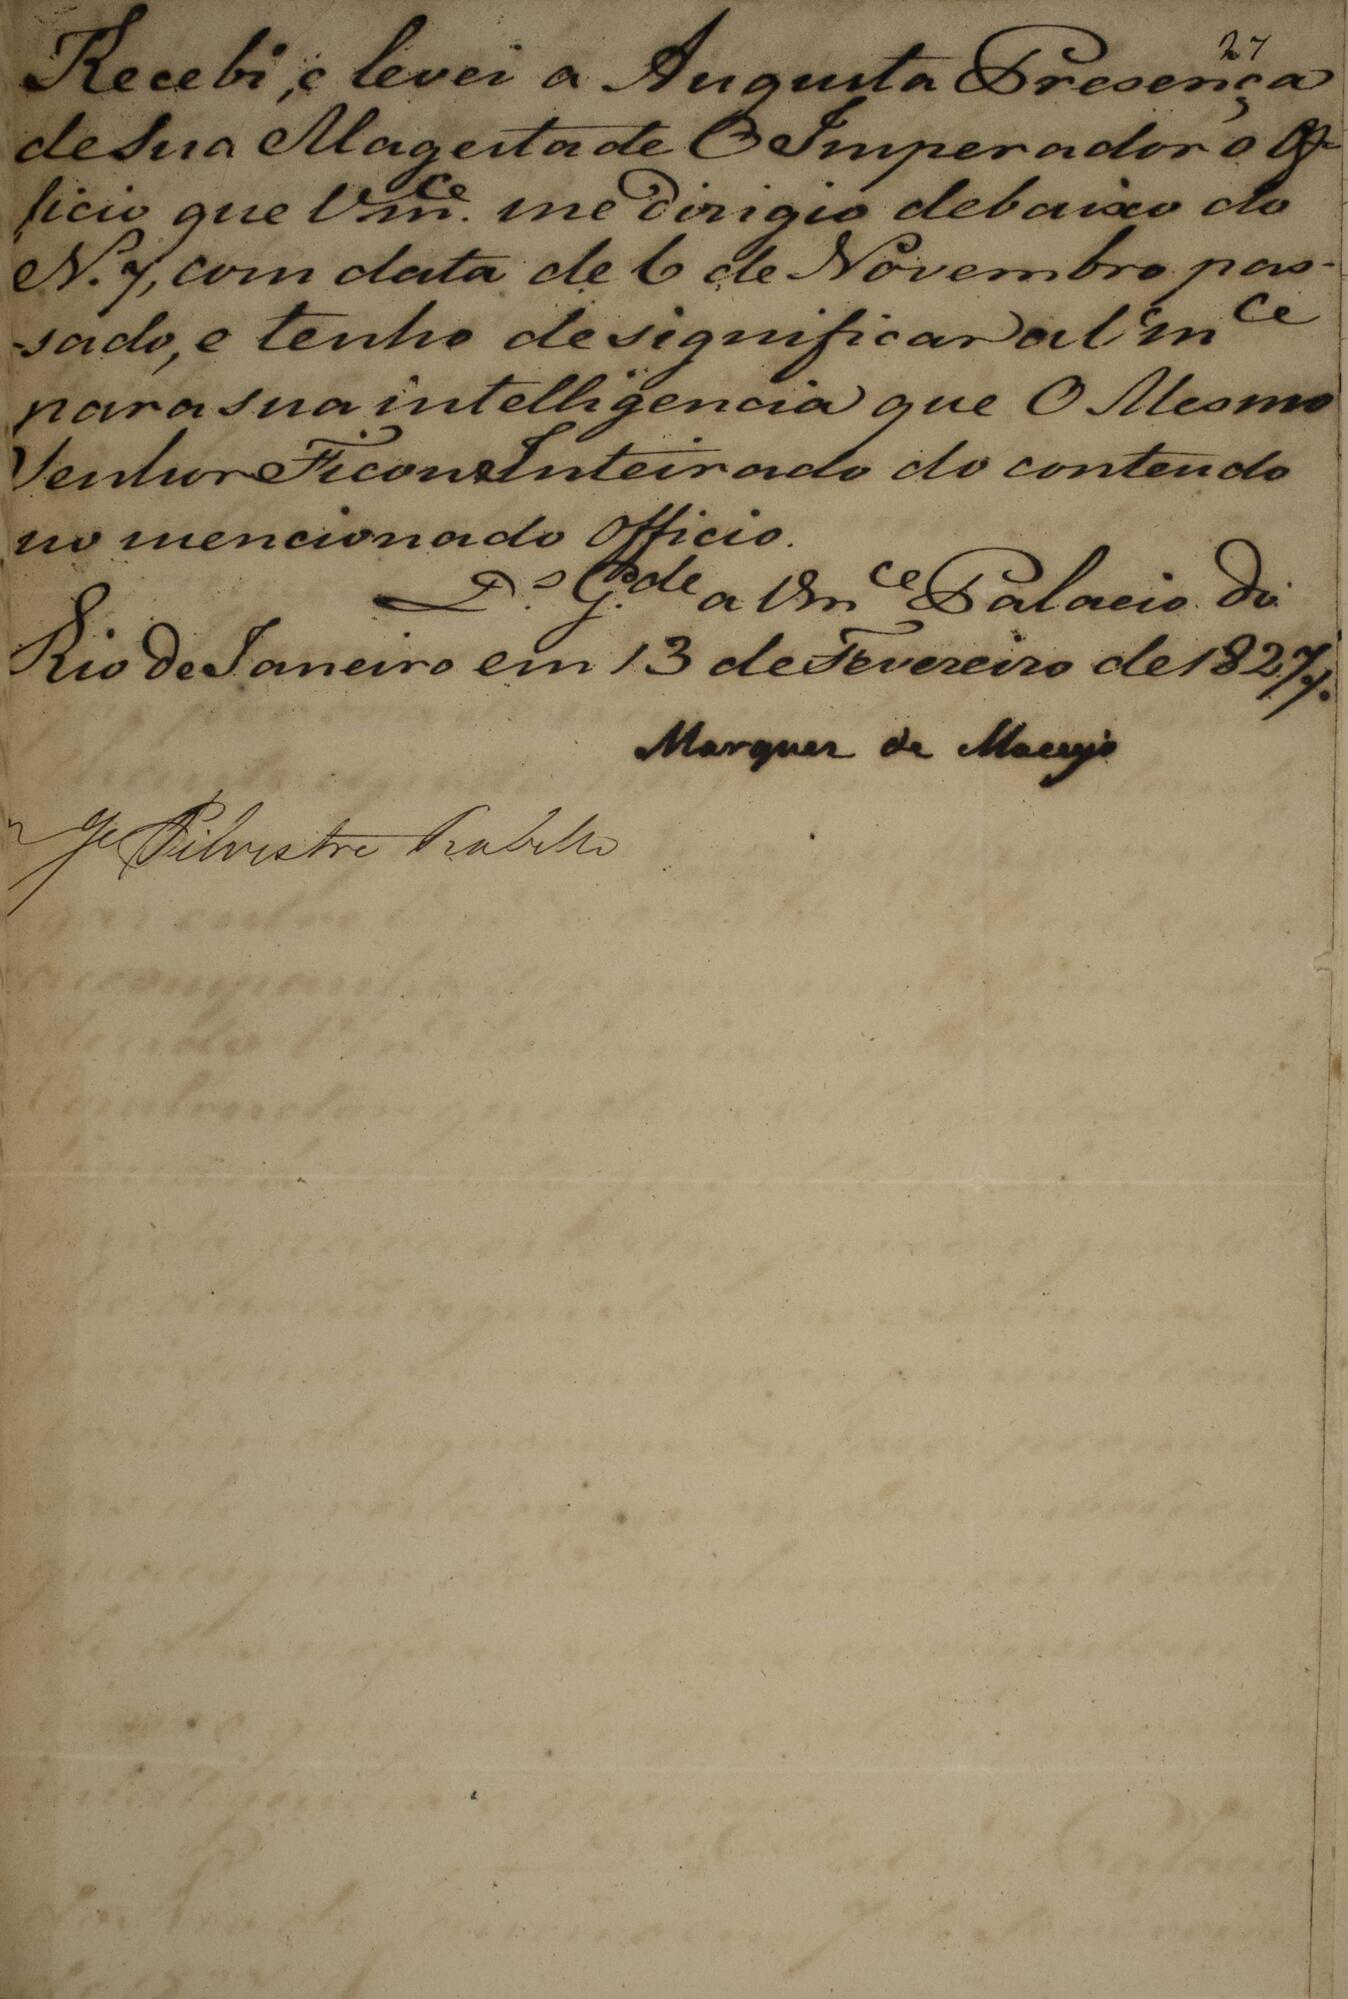 27
Recebi, e levei a Augusta Presença
de Sua Magestade O Imperador o Of-
ficio que Vm.ce me dirigio debaixo do
N. 7, com data de 6 de Novembro pas-
sado, e tenho de significar a Vmce
para sua intelligencia que O Mesmo
Senhor Ficou Inteirado do conteudo
no mencionado officio.
D.s G.de a Vmce Palacio do
Rio de Janeiro em 13 de Fevereiro de 1827.
Marquez de Maceyó
Silvestre Rabello